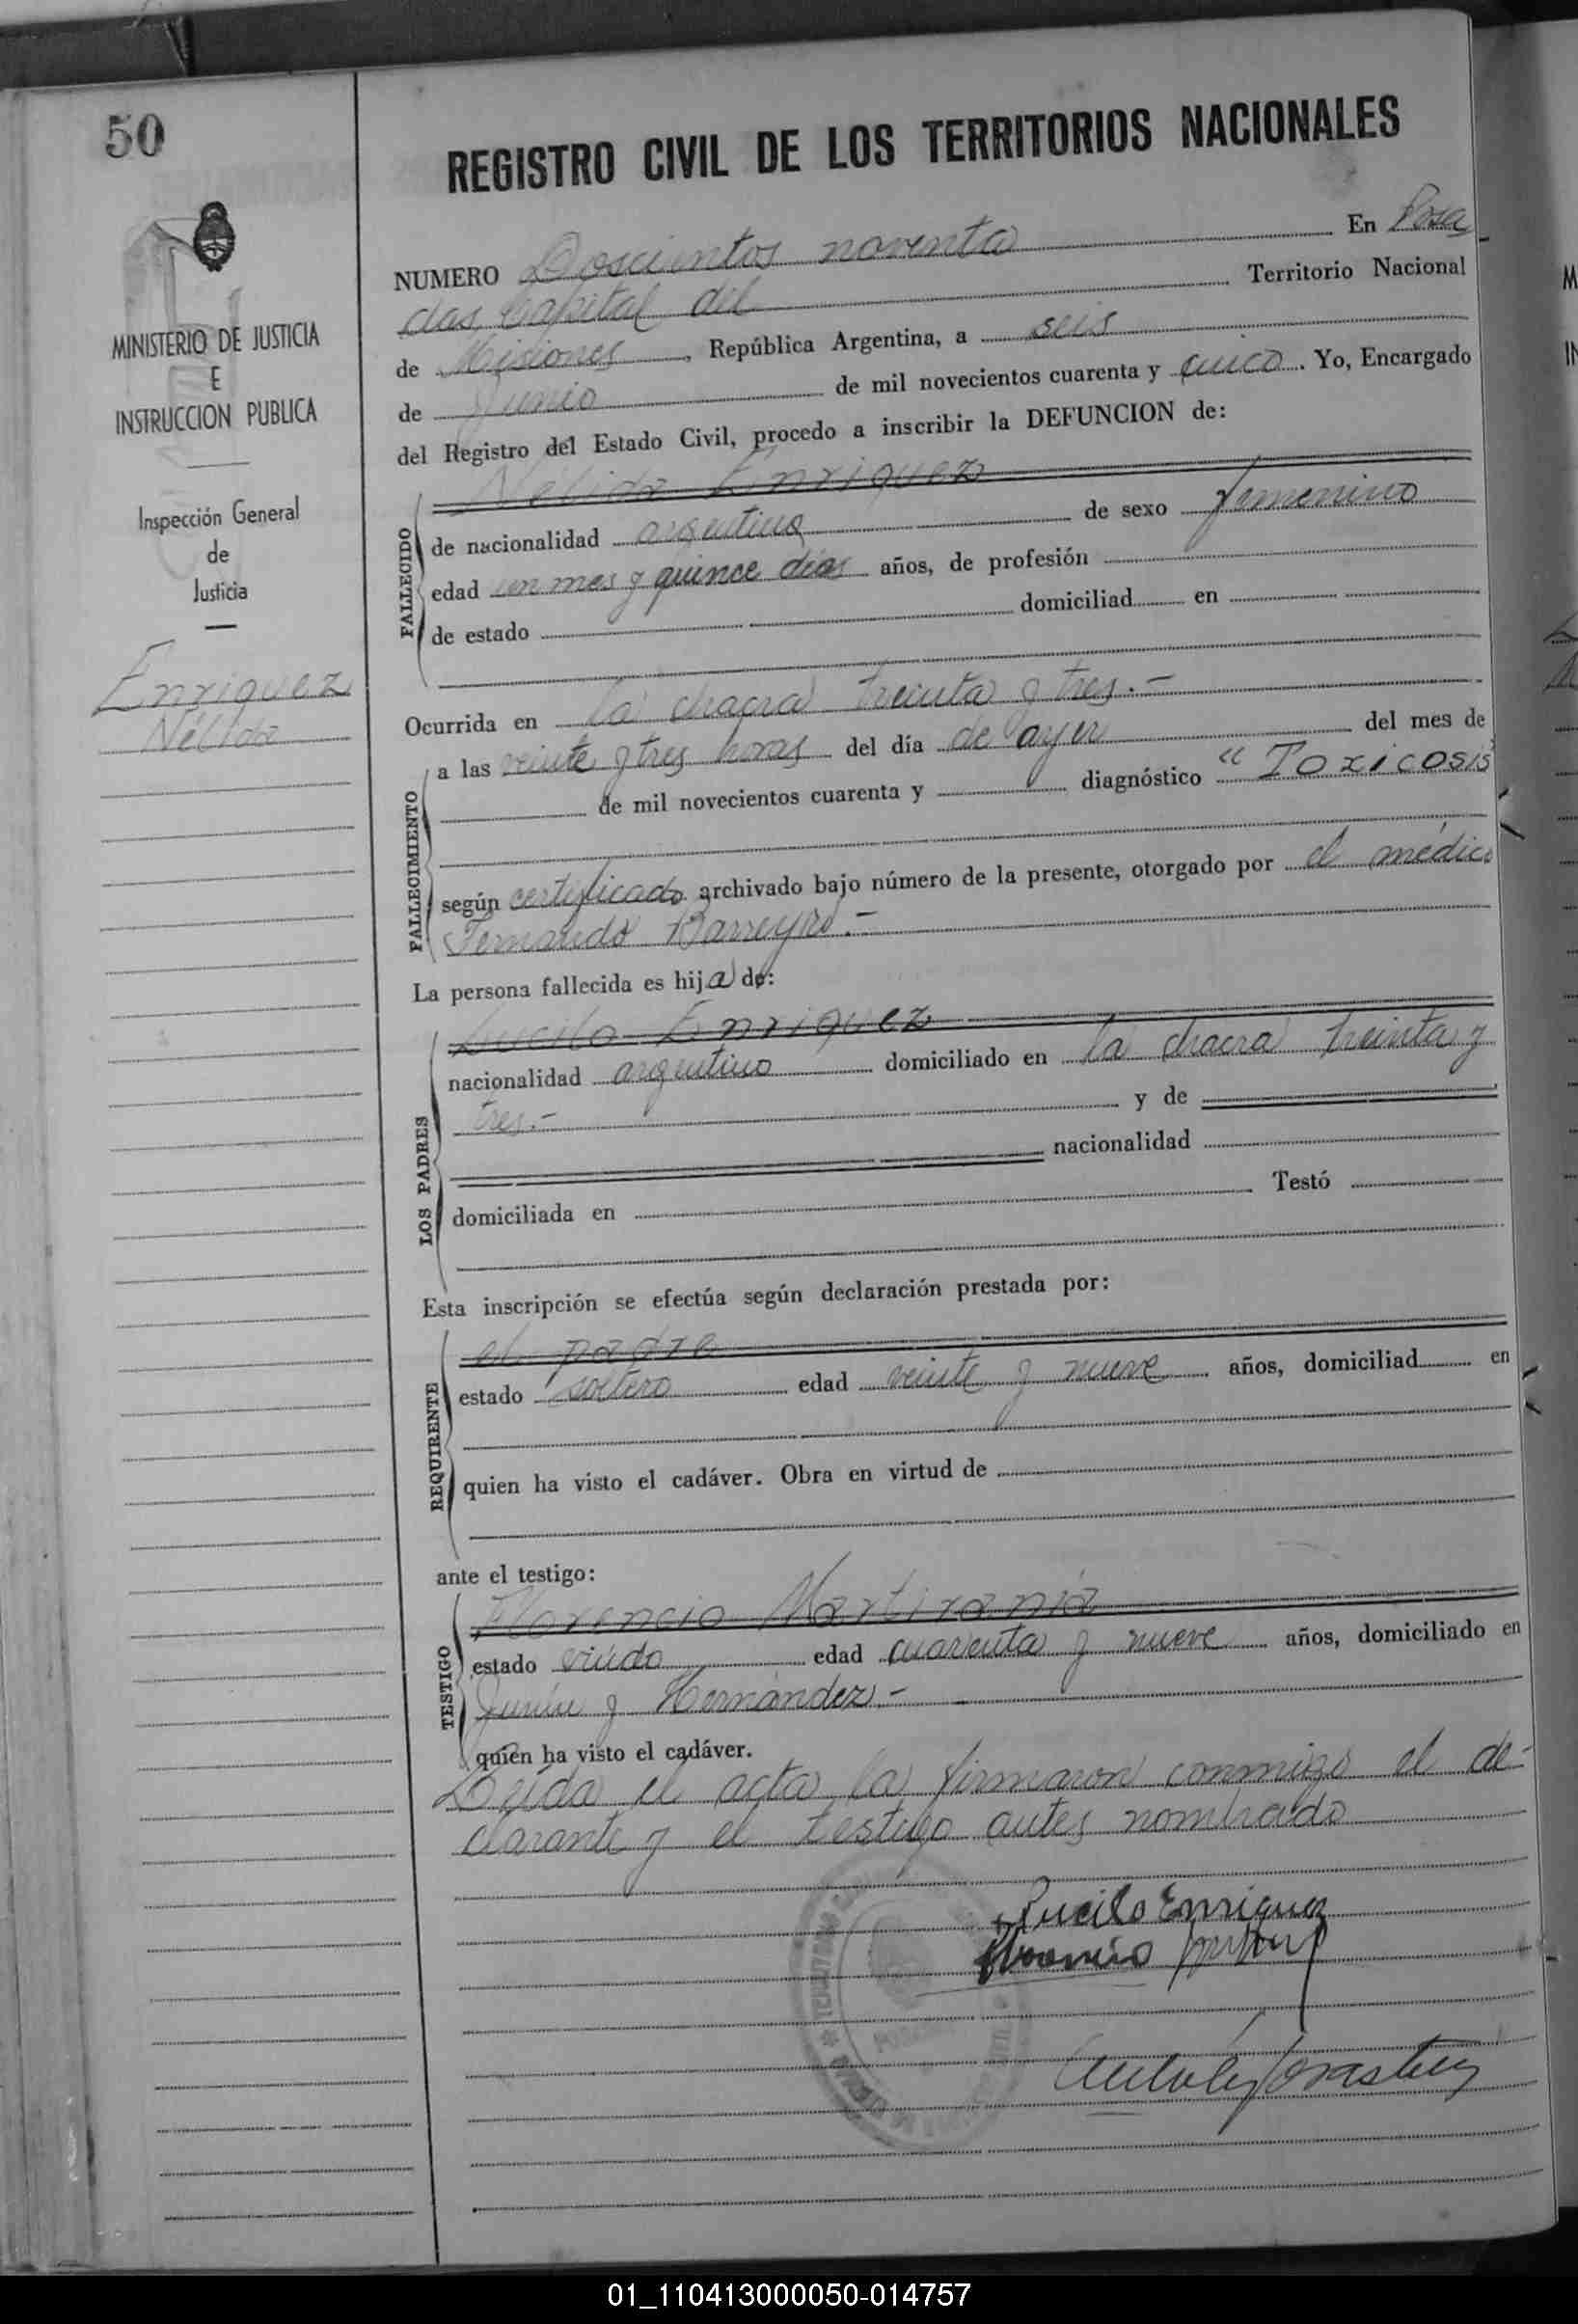 50
MINISTERIO DE JUSTICIA
E
INSTRUCCION PUBLICA
Inspección General
de
Justicia
Enriquez
Nélida
REGISTRO CIVIL DE LOS TERRITORIOS NACIONALES
NUMERO Doscientos noventa En Posa
das, Capital del Territorio Nacional
de Misiones, República Argentina, a seis
de Junio de mil novecientos cuarenta y cinco. Yo, Encargado
del Registro del Estado Civil, procedo a inscribir la DEFUNCION de:
FALLECIDO
Nélida Enriquez
de nacionalidad argentina de sexo femenino
edad un mes y quince dias años, de profesión
de estado domiciliad en
Ocurrida en la chacra treinta y tres.-
FALLECIMIENTO
a las veinte y tres horas del día de ayer del mes de
de mil novecientos cuarenta y diagnóstico "Toxicosis"
según certificado archivado bajo número de la presente, otorgado por el médico
Fernando Barreyro.-
La persona fallecida es hija de:
LOS PADRES
Lucilo Enriquez
nacionalidad argentino domiciliado en la chacra treinta y
tres.- y de
nacionalidad
domiciliada en Testó
Esta inscripción se efectúa según declaración prestada por:
REQUIRENTE
el padre
estado soltero edad veinte y nueve años, domiciliad en
quien ha visto el cadáver. Obra en virtud de
ante el testigo:
TESTIGO
Florencio Martirania
estado viudo edad cuarenta y nueve años, domiciliado en
Junín y Hernández.-
quien ha visto el cadáver.
Leida el acta, la firmaron conmigo el de-
clarante y el testigo antes nombrado
Lucilo Enriquez
01_110413000050-014757